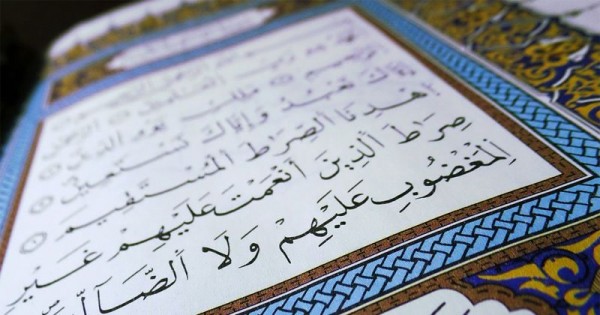 ٱلرَّحِيمِ مَٰلِكِ يَوْمِ ٱلدِّينِ
إِيَّاكَ نَعْبُدُ وَإِيَّاكَ نَسْتَعِينُ
ٱهْدِنَا ٱلصِّرَاطَ ٱلْمُسْتَقِيمَ
صِرَاطَ ٱلَّذِينَ أَنْعَمْتَ عَلَيْهِمْ غَيْرِ
ٱلْمَغْضُوبِ عَلَيْهِمْ وَلَا ٱلضَّآلِّ